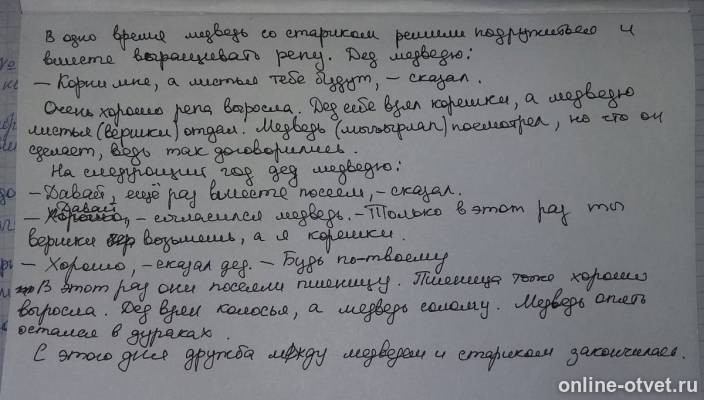 В одно время медведь со стариком решили подружиться и
вместе выращивать репу. Дед медведю:
– Корни мне, а листья тебе будут, – сказал.
Очень хорошо репа выросла. Дед себе взял корешки, а медведю
листья (вершки) отдал. Медведь посмотрел, но что он
сделает, ведь так договорились.
На следующий год дед медведю:
– Давай, ещё раз вместе посеем, – сказал.
– Давай, – согласился медведь. – Только в этот раз ты
вершки возьмешь, а я корешки.
– Хорошо, – сказал дед. – Будь по-твоему
В этот раз они посеяли пшеницу. Пшеница тоже хорошо
выросла. Дед взял колосья, а медведь солому. Медведь опять
остался в дураках.
С этого дня дружба между медведем и стариком закончилась.
online-otvet.ru